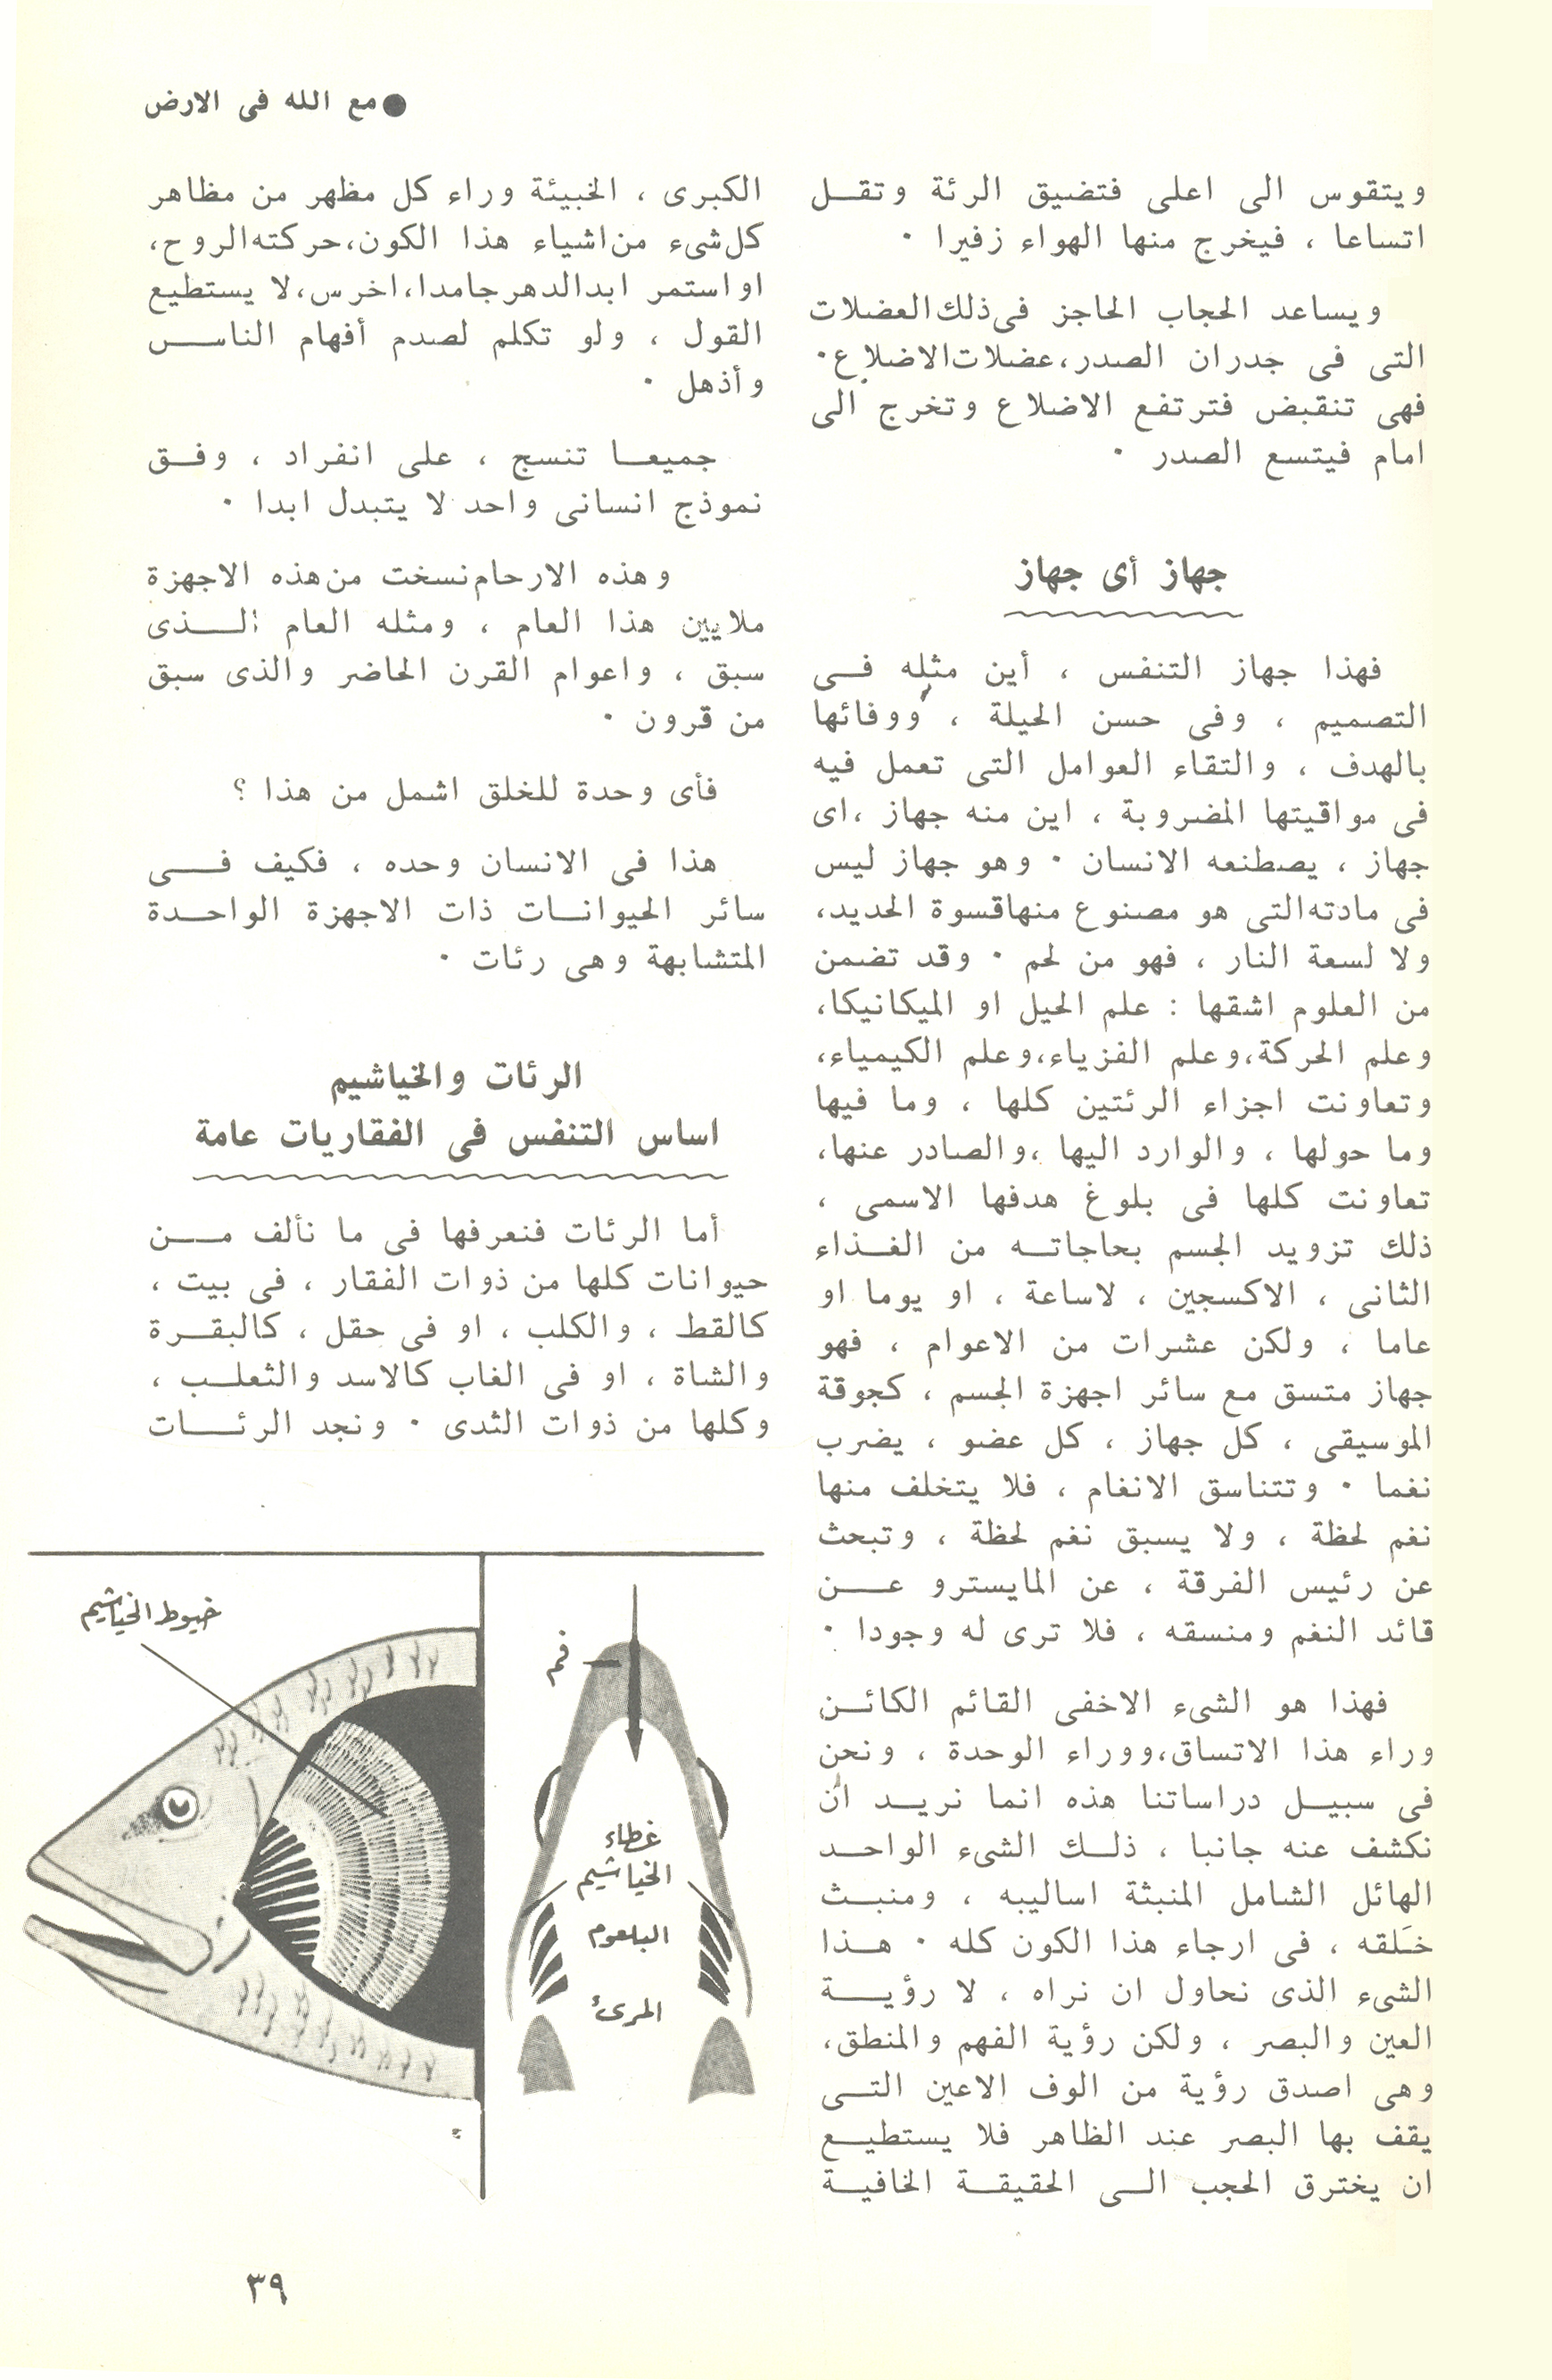 ● مع الله فى الارض
ويتقوس الى اعلى فتضيق الرئة وتقـل
اتساعا ، فيخرج منها الهواء زفيرا ٠
ويساعد الحجاب الحاجز فى ذلك العضلات
التى فى جدران الصدر، عضلات الاضلاع٠
فهى تنقبض فترتفع الاضلاع وتخرج الى
امام فيتسع الصدر ٠
جهاز أى جهاز
فهذا جهاز التنفس ، أين مثله فـى
التصميم ، وفى حسن الحيلة ، ووفائها
بالهدف ، والتقاء العوامل التى تعمل فيه
فى مواقيتها المضروبة ، اين منه جهاز ،اى
جهاز ، يصطنعه الانسان ٠ وهو جهاز ليس
فى مادته التى هو مصنوع منها قسوة الحديد،
ولا لسعة النار ، فهو من لحم ٠ وقد تضمن
من العلوم اشقها : علم الحيل او الميكانيكا،
وعلم الحركة، وعلم الفزياء، وعلم الكيمياء،
وتعاونت اجزاء الرئتين كلها ، وما فيها
وما حولها ، والوارد اليها ،والصادر عنها،
تعاونت كلها فى بلوغ هدفها الاسمى ،
ذلك تزويد الجسم بحاجاتـه من الغـذاء
الثانى ، الاكسجين ، لاساعة ، او يوما او
عاما ، ولكن عشرات من الاعوام ، فهو
جهاز متسق مع سائر اجهزة الجسم ، كجوقة
الموسيقى ، كل جهاز ، كل عضو ، يضرب
نغما ٠ وتتناسق الانغام ، فلا يتخلف منها
نغم لحظة ، ولا يسبق نغم لحظة ، وتبحث
عن رئيس الفرقة ، عن المايسترو عـــن
قائد النغم ومنسقه ، فلا ترى له وجودا ٠
فهذا هو الشىء الاخفى القائم الكائـن
وراء هذا الاتساق، ووراء الوحدة ، ونحن
فى سبيـل دراساتنا هذه انما نريـد أن
نكشف عنه جانبا ، ذلـك الشىء الواحـد
الهائل الشامل المنبثة اساليبه ، ومنبـث
خلَقه ، فى ارجاء هذا الكون كله ٠ هـذا
الشىء الذى نحاول ان نراه ، لا رؤيــة
العين والبصر ، ولكن رؤية الفهم والمنطق،
وهى اصدق رؤية من الوف الاعين التـى
يقف بها البصر عند الظاهر فلا يستطيـع
ان يخترق الحجب الـى الحقيقـة الخافيـة
الكبرى ، الخبيئة وراء كل مظهر من مظاهر
كل شىء من اشياء هذا الكون، حركته الروح،
او استمر ابد الدهر جامدا، اخرس، لا يستطيع
القول ، ولو تكلم لصدم أفهام الناســ
وأذهل ٠
جميعـا تنسج ، على انفراد ، وفـق
نموذج انسانى واحد لا يتبدل ابدا ٠
وهذه الارحام نسخت من هذه الاجهزة
ملايين هذا العام ، ومثله العام الــذى
سبق ، واعوام القرن الحاضر والذى سبق
من قرون ٠
فأى وحدة للخلق اشمل من هذا ؟
هذا فى الانسان وحده ، فكيف فــى
سائر الحيوانـات ذات الاجهزة الواحـدة
المتشابهة وهى رئات ٠
الرئات والخياشيم
اساس التنفس فى الفقاريات عامة
أما الرئات فنعرفها فى ما نألف مــن
حيوانات كلها من ذوات الفقار ، فى بيت ،
كالقط ، والكلب ، او فى حقل ، كالبقـرة
والشاة ، او فى الغاب كالاسد والثعلـب ،
وكلها من ذوات الثدى ٠ ونجد الرئــات
خيوط الخياشيم
فم
غطاء
الخياشيم
البلعوم
المرىء
٣٩